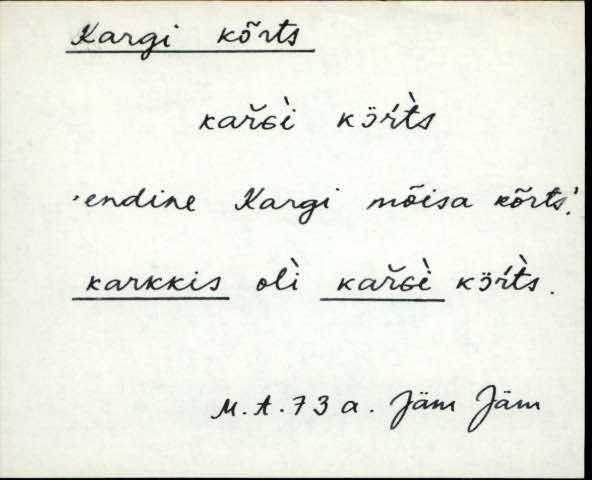 Kargi kõrts
kar̆ɢì kɔ̈ŕt̀s
'endine Kargi mõisa kõrts'.
karkkis olì kar̆ɢì kɔ̈ŕt̀s.
M.A. 73 a. Jäm Jäm